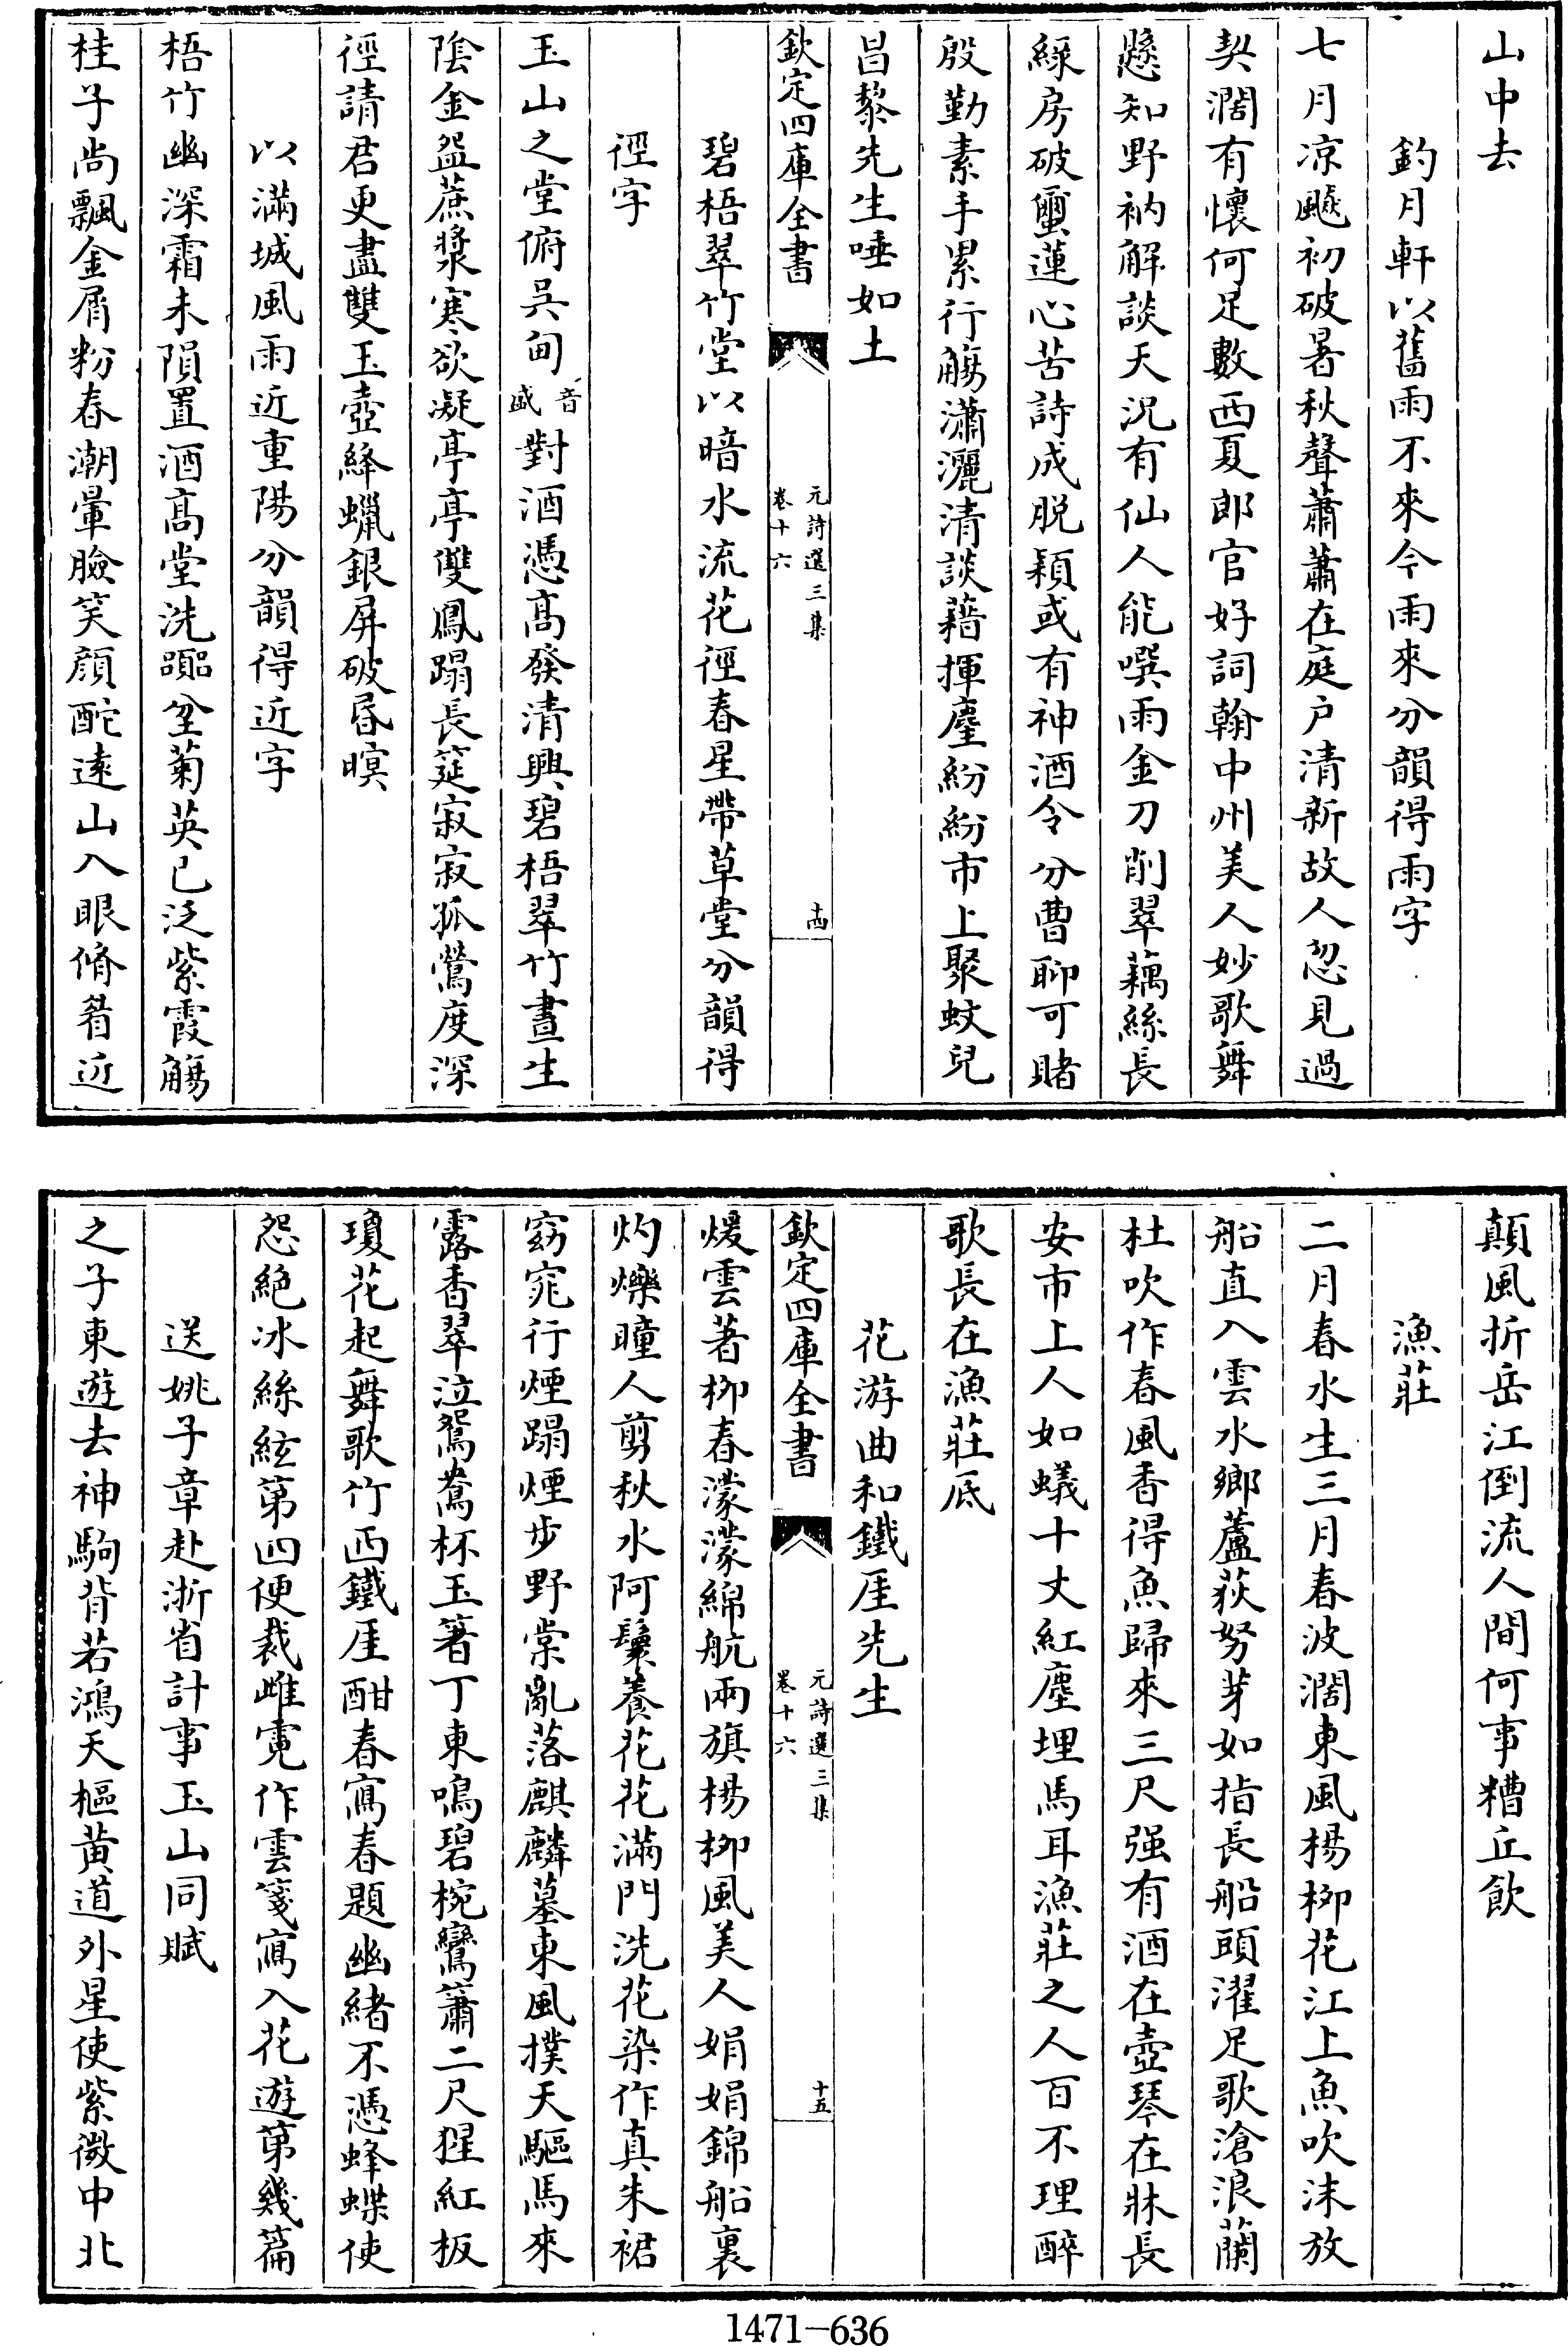 山中去
釣月軒以舊雨不來今雨來分韻得雨字
七月凉颸初破暑秋聲蕭蕭在庭户清新故人忽見過
契濶有懷何足數西夏郎官好詞翰中州美人妙歌舞
懸知野衲解談天況有仙人能噀雨金刀削翠藕絲長
綠房破蠒蓮心苦詩成脱穎或有神酒令分曹聊可賭
殷勤素手累行觴瀟灑清談藉揮麈紛紛市上聚蚊兒
昌黎先生唾如土
欽定四庫全書
元詩選三集
卷十六
十四
碧梧翠竹堂以暗水流花徑春星帶草堂分韻得
徑字
玉山之堂俯吳甸音盛對酒憑髙發清興碧梧翠竹晝生
陰金盌蔗漿寒欲凝亭亭雙鳳蹋長筵寂寂孤鶯度深
徑請君更盡雙玉壺絳蠟銀屏破昏暝
以滿城風雨近重陽分韻得近字
梧竹幽深霜未隕置酒髙堂洗嚚坌菊英已泛紫霞觴
桂子尚飄金屑粉春潮暈臉笑顔酡逺山入眼脩眉近
顛風折岳江倒流人間何事糟丘飲
漁莊
二月春水生三月春波濶東風楊柳花江上魚吹沫放
船直入雲水鄉蘆荻努芽如指長船頭濯足歌滄浪蘭
杜吹作春風香得魚歸來三尺强有酒在壺琴在牀長
安市上人如蟻十丈紅塵埋馬耳漁莊之人百不理醉
歌長在漁莊底
花游曲和鐵厓先生
欽定四庫全書
元詩選三集
卷十六
十五
煖雲著栁春濛濛綿航兩旗楊栁風美人娟娟錦船裏
灼爍瞳人剪秋水阿鬟養花花滿門洗花染作真朱裙
窈窕行煙蹋煙步野棠亂落麒麟墓東風撲天驅馬來
露香翠泣鴛鴦杯玉箸丁東鳴碧椀鸞簫二尺猩紅板
瓊花起舞歌竹西鐵厓酣春寫春題幽緒不憑蜂蝶使
怨絶冰絲絃第四便裁雌霓作雲箋寫入花遊第幾篇
送姚子章赴浙省計事玉山同賦
之子東遊去神駒背若鴻天樞黄道外星使紫微中北
1471-636